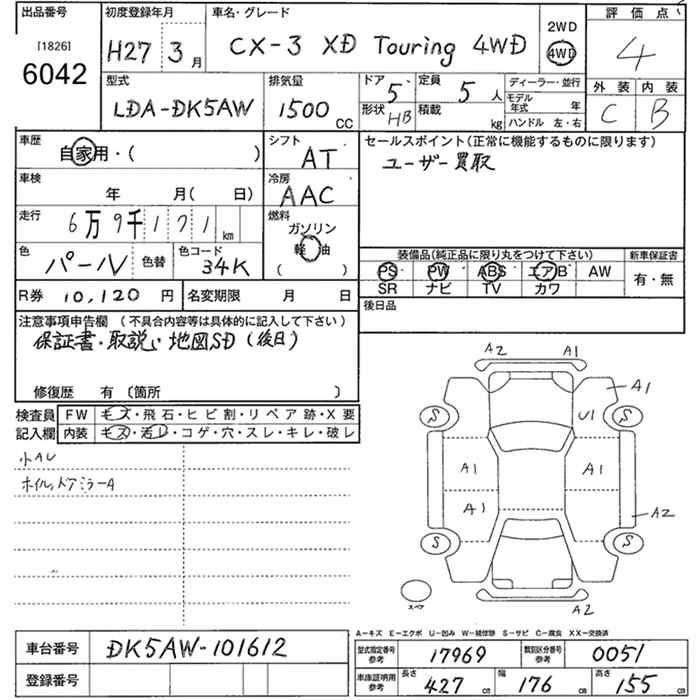 出品番号 初度登録年月 車名・グレード 評価点
[1826] 6042 H27 3月 CX-3 XD Touring 4WD 2WD 4WD 4
型式 排気量 ドア 5 定員 5人 ディーラー・並行 外装 内装
LDA-DK5AW 1500CC 形状 HB 積載 kg モデル年式 年 C B
ハンドル 左・右
車歴 自家用・( ) シフト AT セールスポイント(正常に機能するものに限ります)
ユーザー買取
車検 年 月( 日) 冷房 AAC
走行 6万9千171km 燃料 ガソリン
軽油
( )
色 パール 色替 色コード 34K 装備品(純正品に限り丸をつけて下さい) 新車保証書
PS PW ABS エアB AW 有・無
SR ナビ TV カワ
R券 10,120円 名変期限 月 日 後日品
注意事項申告欄(不具合内容等は具体的に記入して下さい)
保証書・取説、地図SD(後日)
修復歴 有〔箇所 〕
検査員 FW キズ・飛石・ヒビ割・リペア跡・X要
記入欄 内装 キズ・汚レ・コゲ・穴・スレ・キレ・破レ
小AU
ホイル、ドアミラーA
A2 A1
A1
S U1 S
A1 A1
A1 A2
S S
スペア
A2
A-キズ E-エクボ U-凹み W-補修跡 S-サビ C-腐食 XX-交換済
車台番号 DK5AW-101612 型式指定番号 参考 17969 類別区分番号 参考 0051
登録番号 車庫証明用 参考 長さ 427cm 幅 176cm 高さ 155cm